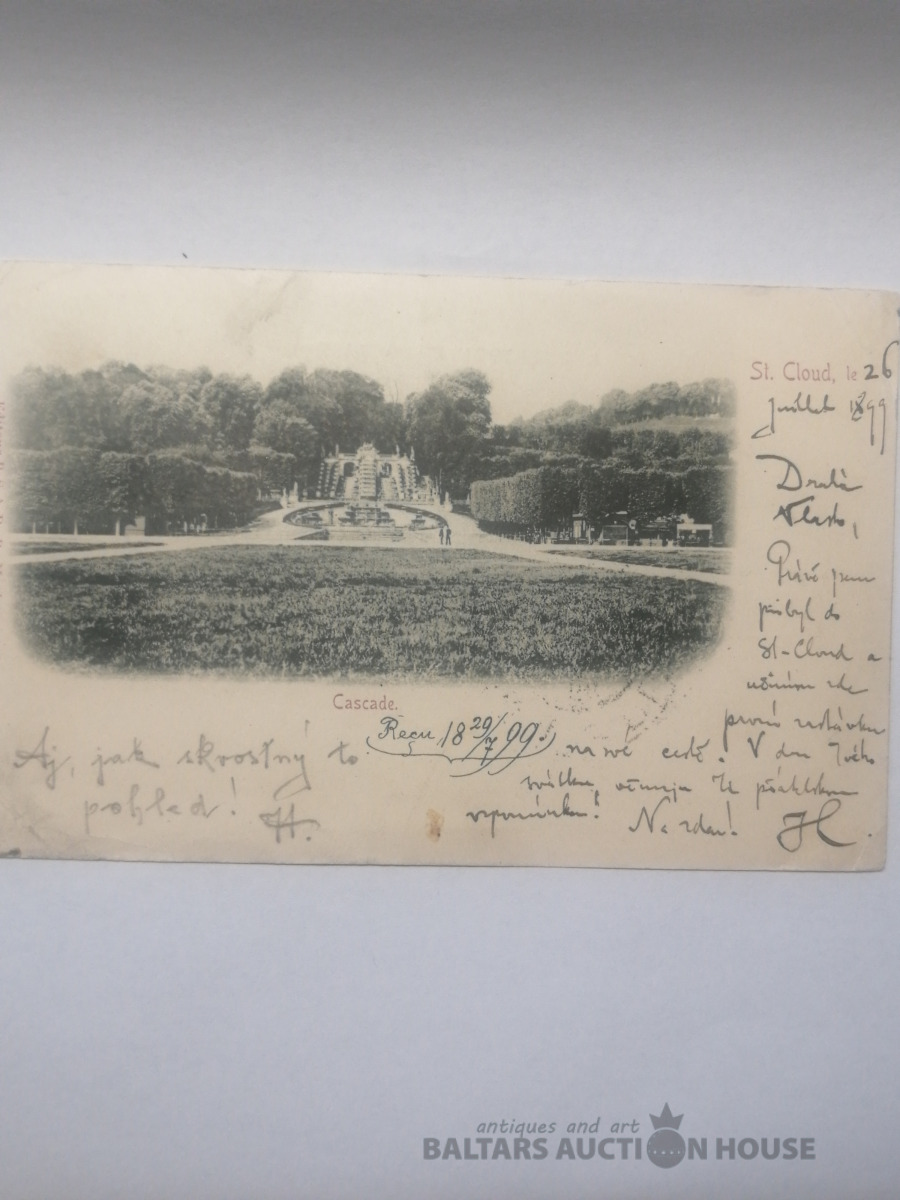 St. Cloud, le 26
juillet 1899
Drahá
Vlasto,
Právě jsem
přibyl do
St-Cloud a
učiním zde
první zastávku
na své cestě. V den Tvého
svátku, věnuju Ti přátelskou
vzpomínku!
Na zdar! H.
Cascade.
Reçu 18 29/7 99.
Aj, jak skvostný to
pohled! H.
antiques and art
BALTARS AUCTION HOUSE